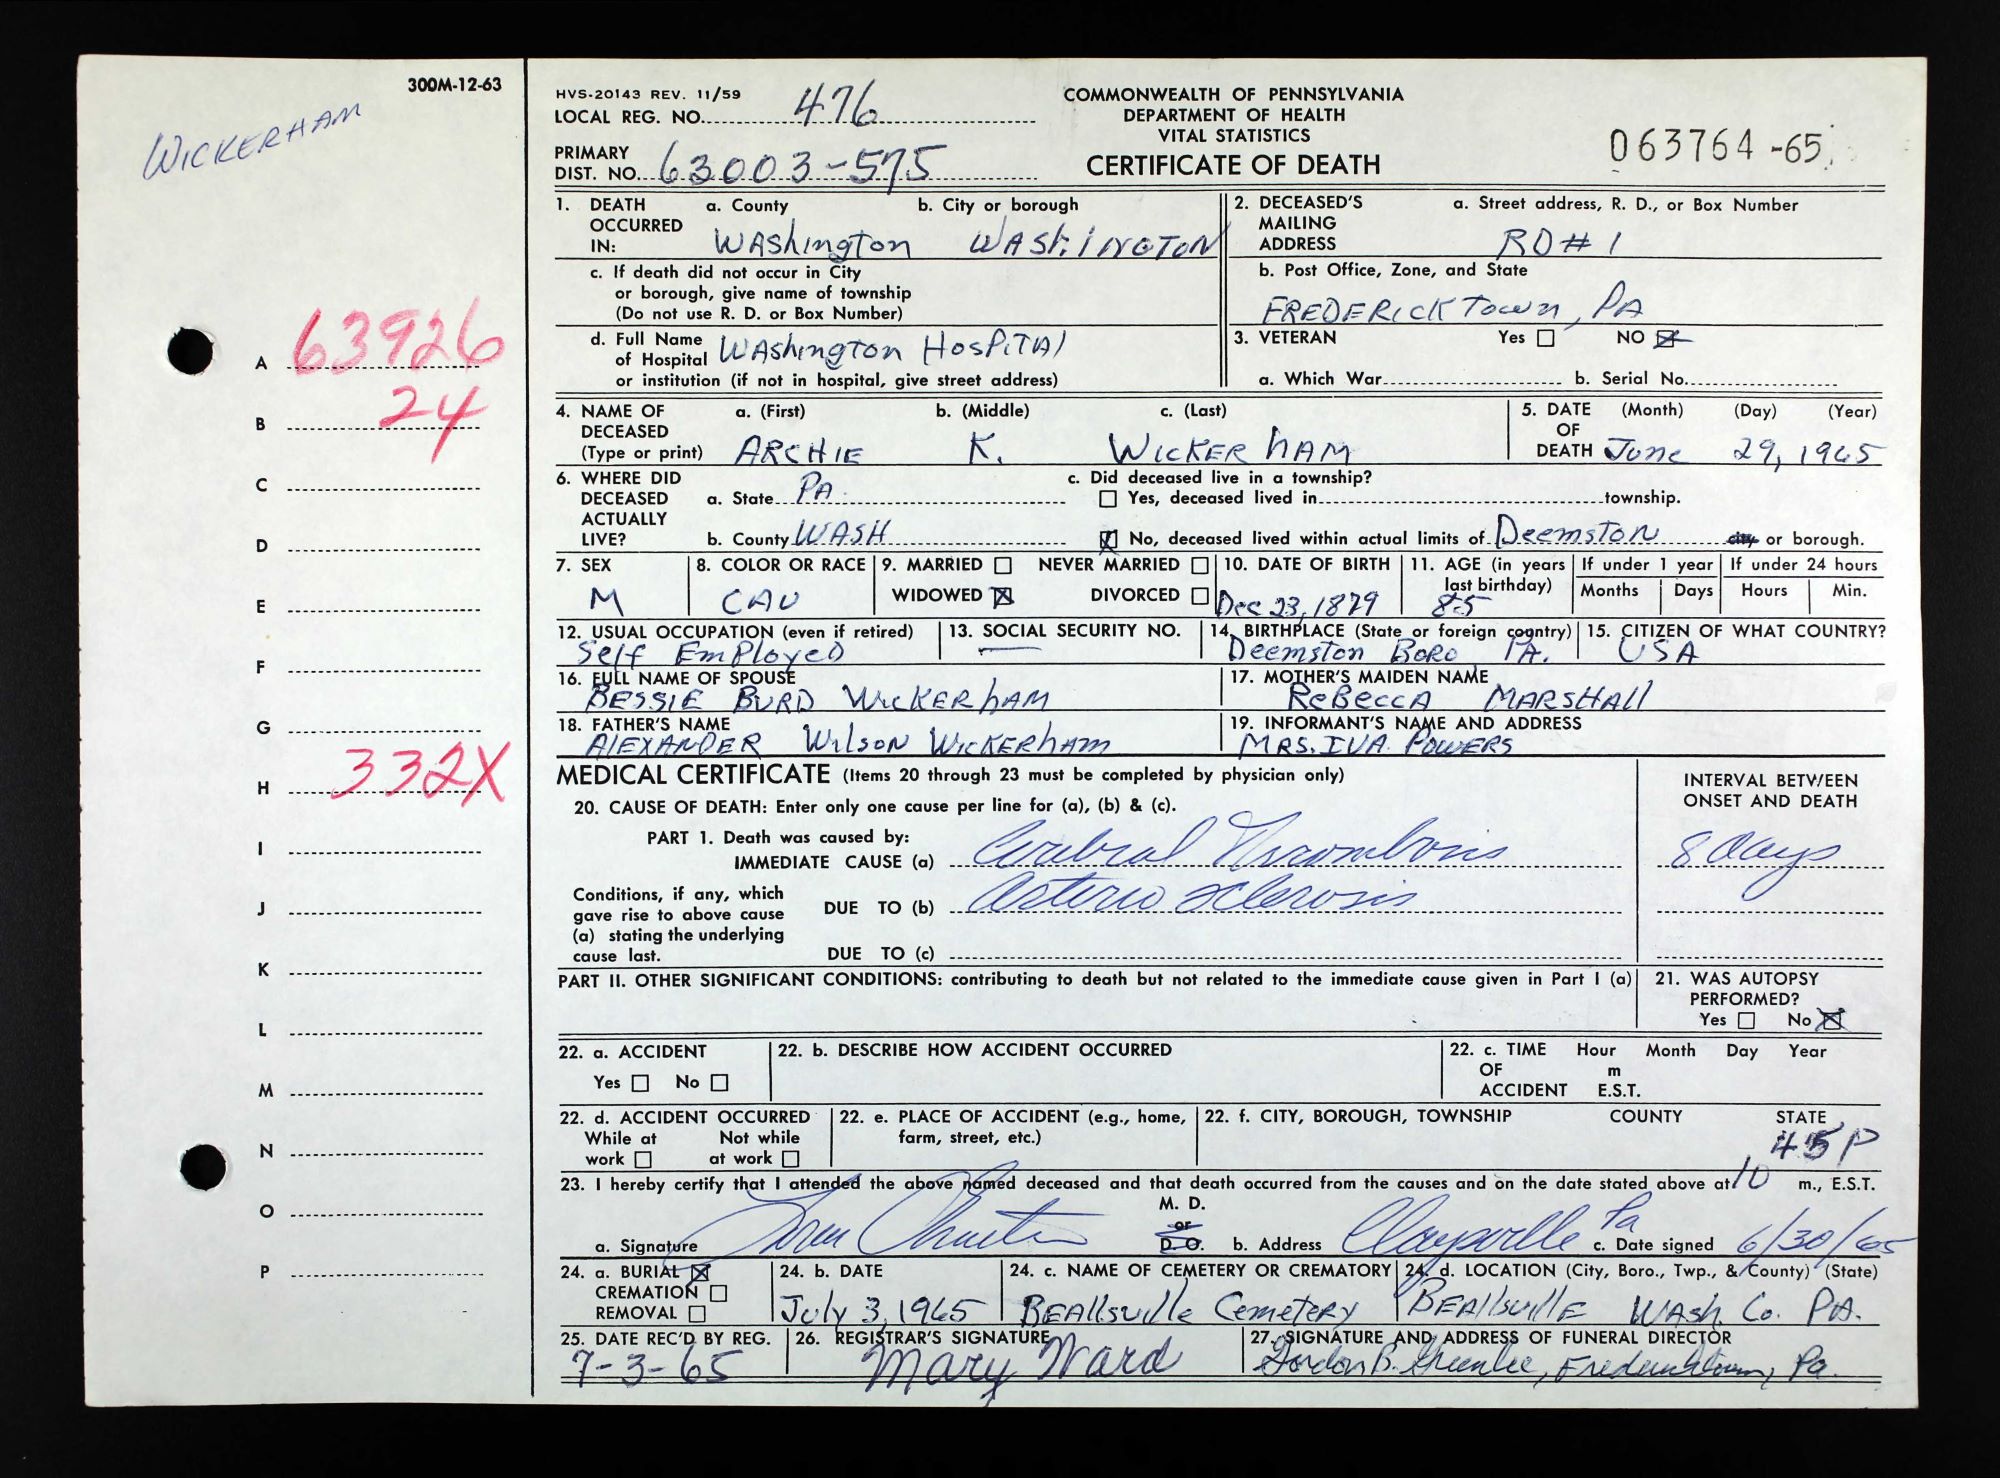 300M-12-63
WICKERHAM
A 63926
B 24
C
D
E
F
G
H 332X
I
J
K
L
M
N
O
P
HVS-20143 REV. 11/59
LOCAL REG. NO. 476
PRIMARY DIST. NO. 63003-575
COMMONWEALTH OF PENNSYLVANIA
DEPARTMENT OF HEALTH
VITAL STATISTICS
CERTIFICATE OF DEATH
063764-65
1. DEATH OCCURRED IN: a. County Washington b. City or borough WASHINGTON
c. If death did not occur in City
or borough, give name of township
(Do not use R. D. or Box Number)
d. Full Name of Hospital Washington Hospital
or institution (if not in hospital, give street address)
2. DECEASED'S MAILING ADDRESS a. Street address, R. D., or Box Number RD# 1
b. Post Office, Zone, and State
FREDERICKTown, PA
3. VETERAN Yes NO
a. Which War b. Serial No.
4. NAME OF DECEASED (Type or print) a. (First) ARCHIE b. (Middle) K. c. (Last) WICKERHAM
5. DATE OF DEATH (Month) (Day) (Year) June 29, 1965
6. WHERE DID DECEASED ACTUALLY LIVE? a. State PA
b. County WASH
c. Did deceased live in a township?
Yes, deceased lived in township.
No, deceased lived within actual limits of Deemston city or borough.
7. SEX M
8. COLOR OR RACE CAU
9. MARRIED NEVER MARRIED
WIDOWED DIVORCED
10. DATE OF BIRTH Dec 23, 1879
11. AGE (in years last birthday) 85
If under 1 year Months Days
If under 24 hours Hours Min.
12. USUAL OCCUPATION (even if retired) Self EmPloyeD
13. SOCIAL SECURITY NO. —
14. BIRTHPLACE (State or foreign country) Deemston Boro PA.
15. CITIZEN OF WHAT COUNTRY? USA
16. FULL NAME OF SPOUSE BESSIE BURD WICKERHAM
17. MOTHER'S MAIDEN NAME ReBecca MARSHAll
18. FATHER'S NAME AlEXANDER Wilson WICKERHAM
19. INFORMANT'S NAME AND ADDRESS MRS. IVA POWERS
MEDICAL CERTIFICATE (Items 20 through 23 must be completed by physician only)
20. CAUSE OF DEATH: Enter only one cause per line for (a), (b) & (c).
INTERVAL BETWEEN ONSET AND DEATH
PART 1. Death was caused by:
IMMEDIATE CAUSE (a) Cerebral Thrombosis 8 days
Conditions, if any, which gave rise to above cause (a) stating the underlying cause last.
DUE TO (b) Arterio sclerosis
DUE TO (c)
PART II. OTHER SIGNIFICANT CONDITIONS: contributing to death but not related to the immediate cause given in Part I (a)
21. WAS AUTOPSY PERFORMED?
Yes No
22. a. ACCIDENT
Yes No
22. b. DESCRIBE HOW ACCIDENT OCCURRED
22. c. TIME OF ACCIDENT Hour Month Day Year
m
E.S.T.
22. d. ACCIDENT OCCURRED
While at work Not while at work
22. e. PLACE OF ACCIDENT (e.g., home, farm, street, etc.)
22. f. CITY, BOROUGH, TOWNSHIP COUNTY STATE
23. I hereby certify that I attended the above named deceased and that death occurred from the causes and on the date stated above at 10 45 P m., E.S.T.
a. Signature M. D. or D. O. b. Address Claysville Pa c. Date signed 6/30/65
24. a. BURIAL
CREMATION
REMOVAL
24. b. DATE July 3, 1965
24. c. NAME OF CEMETERY OR CREMATORY BEAllsville Cemetery
24. d. LOCATION (City, Boro., Twp., & County) (State) BEAllsvillE WASH. Co. PA.
25. DATE REC'D BY REG. 7-3-65
26. REGISTRAR'S SIGNATURE Mary Ward
27. SIGNATURE AND ADDRESS OF FUNERAL DIRECTOR Gordon B. Greenlee, Fredericktown, Pa.